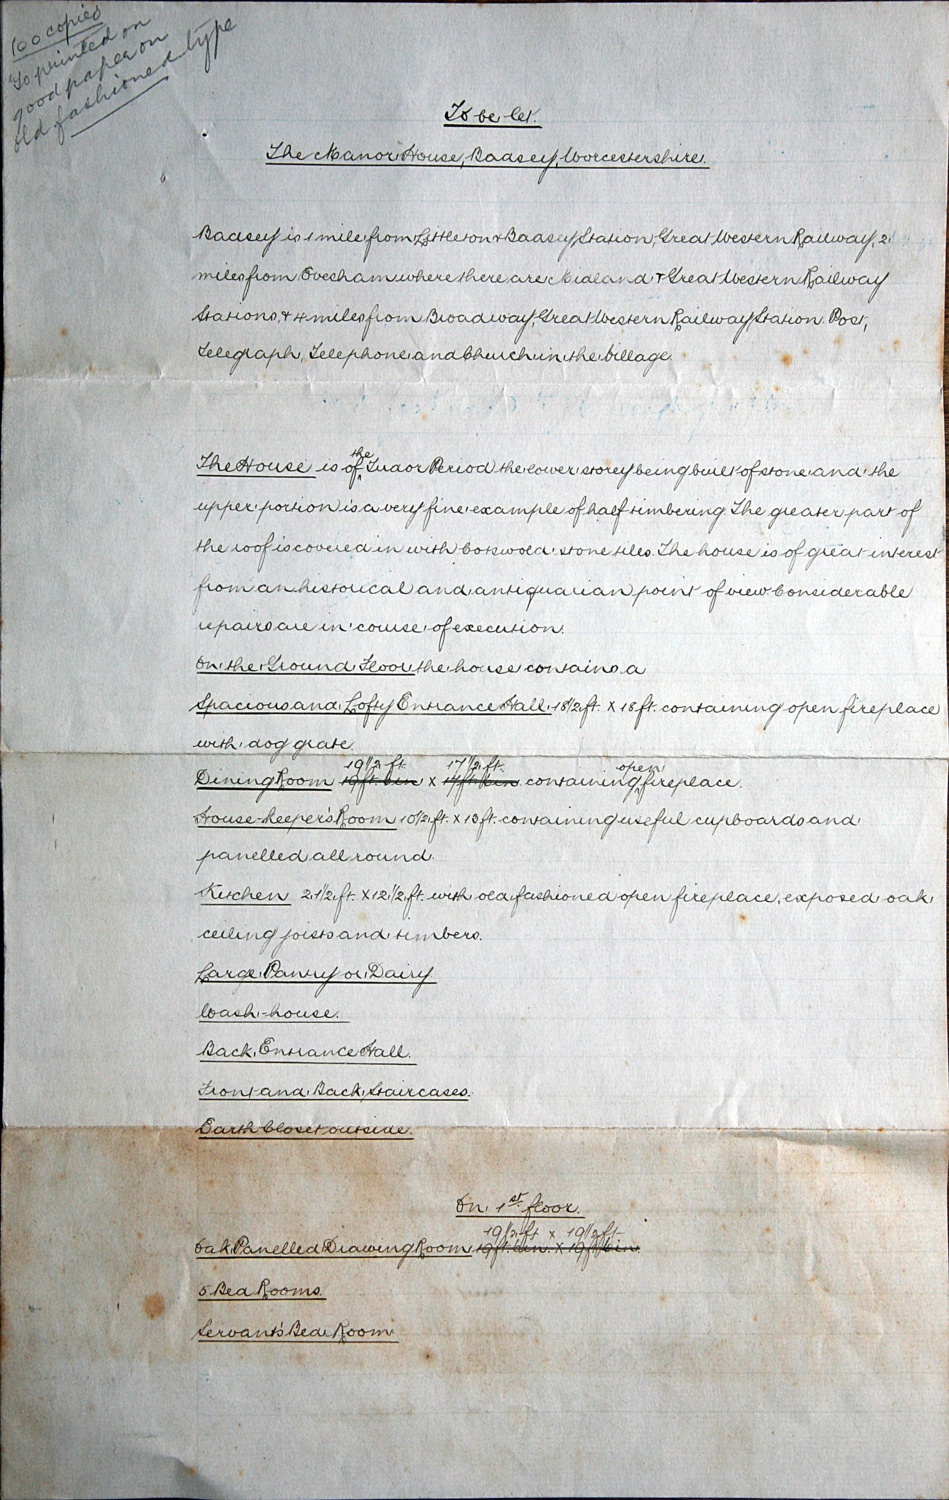 100 copies
To printed on
good paper on
old fashioned type
To be let.
The Manor House, Badsey, Worcestershire.
Badsey is 1 mile from Littleton & Badsey Station, Great Western Railway, 2
miles from Evesham where there are Midland & Great Western Railway
Stations, & 4 miles from Broadway, Great Western Railway Station. Post,
Telegraph, Telephone and Church in the Village
The House is of the Tudor Period the lower storey being built of stone and the
upper portion is a very fine example of half timbering. The greater part of
the roof is covered in with Cotswold stone tiles. The house is of great interest
from an historical and antiquarian point of view Considerable
repairs are in course of execution.
On the Ground Floor the house contains a
Spacious and Lofty Entrance Hall, 18½ ft. x 18 ft. containing open fireplace
with dog grate.
19½ ft. 17½ ft.
Dining Room 19 ft. 6 in x 17 ft. 6 in containing open fireplace.
House-keeper's Room 10½ ft. x 10 ft. containing useful cupboards and
panelled all round.
Kitchen 21½ ft. x 12½ ft. with old fashioned open fireplace, exposed oak
ceiling joists and timbers.
Large Pantry or Dairy
Wash-house.
Back Entrance Hall.
Front and Back Staircases.
Earth Closet outside.
On 1st floor.
19½ ft x 19½ ft.
Oak Panelled Drawing Room 19 ft. 6 in. x 19 ft 6 in.
5 Bed Rooms.
Servant's Bed Room.